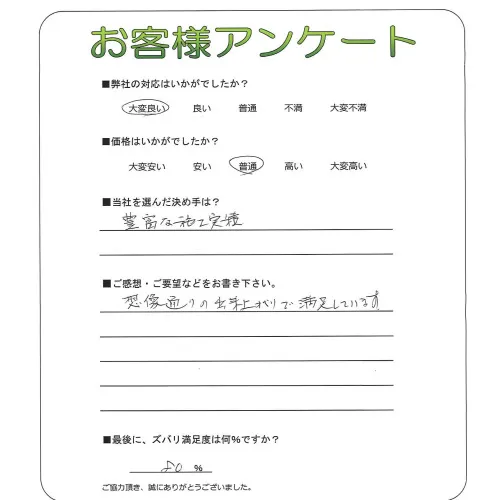 お客様アンケート
■弊社の対応はいかがでしたか？
大変良い 良い 普通 不満 大変不満
■価格はいかがでしたか？
大変安い 安い 普通 高い 大変高い
■当社を選んだ決め手は？
豊富な施工実積
■ご感想・ご要望などをお書き下さい。
想像通りの出来上がりで満足しています
■最後に、ズバリ満足度は何%ですか？
80 %
ご協力頂き、誠にありがとうございました。